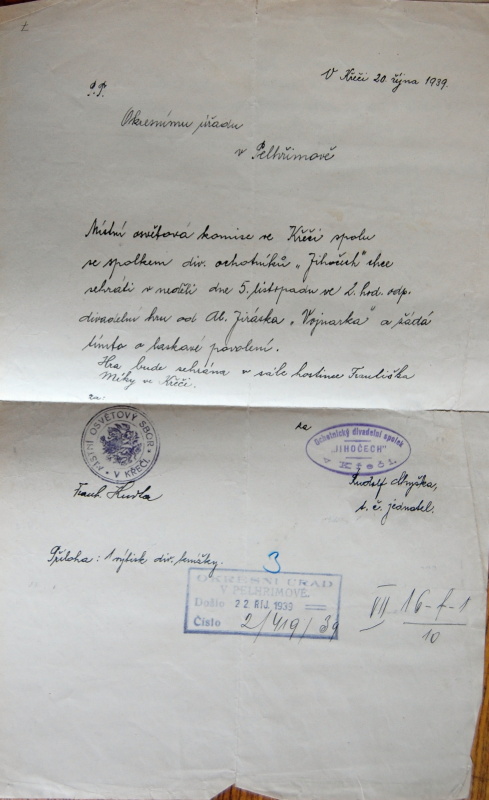 V Křeči 20. října 1939.
P.T.
Okresnímu úřadu
v Pelhřimově
Místní osvětová komise ve Křeči spolu
se spolkem div. ochotníků „Jihočech" chce
sehráti v neděli dne 5. listopadu ve 2. hod. odp.
divadelní hru od Al. Jiráska „Vojnarka" a žádá
tímto o laskavé povolení.
Hra bude sehrána v sále hostince Františka
v Křeči.
za:
MÍSTNÍ OSVĚTOVÝ SBOR
V KŘEČI
za
Ochotnický divadelní spolek
„JIHOČECH"
v Křeči.
Frant.
Rudolf
t. č. jednatel.
Příloha: 1 výtisk div. knížky.
3
OKRESNÍ ÚŘAD
V PELHŘIMOVĚ.
Došlo 22. ŘÍJ. 1939
Číslo 2/419/39
VII 16-f-1
10